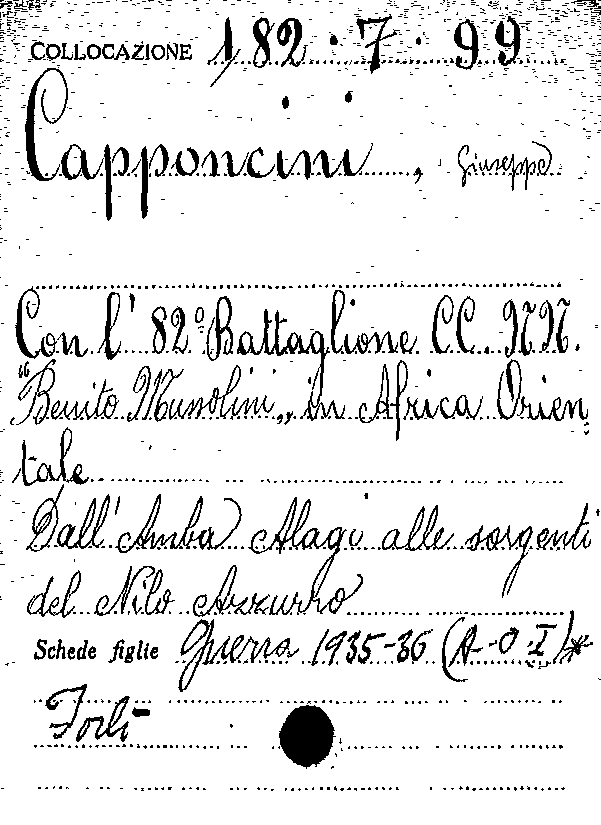 COLLOCAZIONE 182.7.99
Capponcini, Giuseppe
Con l' 82º Battaglione CC. NN.
"Benito Mussolini„ in Africa Orien
tale
Dall'Amba Alagi alle sorgenti
del Nilo Azzurro
Schede figlie Guerra 1935-36 (A-O-I)*
Forlì-